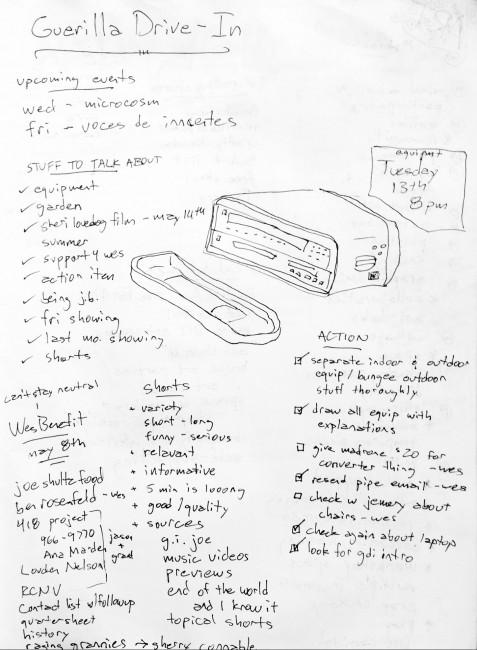 Guerilla Drive-In
upcoming events
wed - microcosm
fri - voces de innocentes
equipmt
Tuesday
13th
8pm
STUFF TO TALK ABOUT
✓ equipment
✓ garden
✓ sheri lovedog film - may 14th
summer
✓ support 4 wes
✓ action item
✓ being j.b.
✓ fri showing
✓ last mo. showing
✓ shorts
can't stay neutral
Wes Benefit
may 8th
joe shultz food
ben rosenfeld - wes
418 project
966-9770
Ana Marden
Louden Nelson
jason
+
grad
RCNV
Contact list w/followup
quartersheet
history
raging grannies → sherry connable
Shorts
+ variety
short - long
funny - serious
+ relevant
+ informative
+ 5 min is looong
+ good / quality
+ sources
g.i. joe
music videos
previews
end of the world
and I know it
topical shorts
ACTION
☑ separate indoor & outdoor
equip / bungee outdoor
stuff thoroughly
☑ draw all equip with
explanations
☐ give madrone $20 for
converter thing - wes
☑ resend pipe email - wes
☐ check w jeremy about
chairs - wes
☑ check again about laptop
☑ look for gdi intro